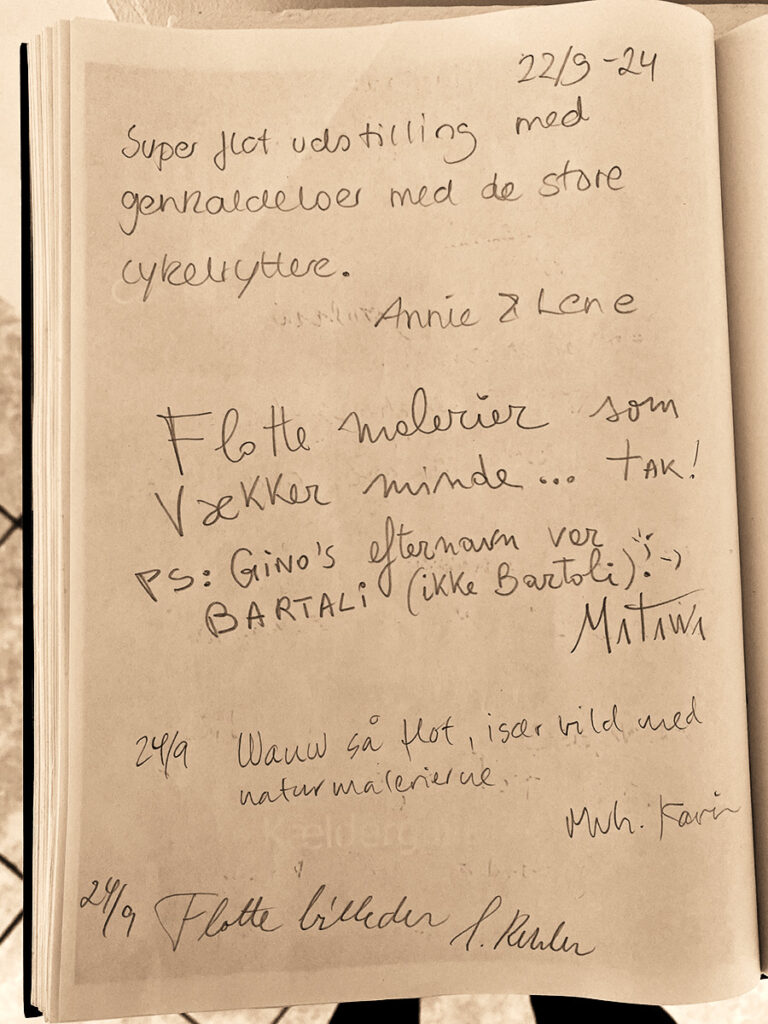 22/9-24
Super flot udstilling med
genkaldelser med de store
cykelryttere.
Annie & Lene
Flotte malerier som
Vækker minde... TAK!
PS: GINO'S efternavn var
BARTALI (ikke Bartoli)! :-)
24/9 Wauw så flot, især vild med
naturmalerierne
Mvh. Karin
24/9 Flotte billeder